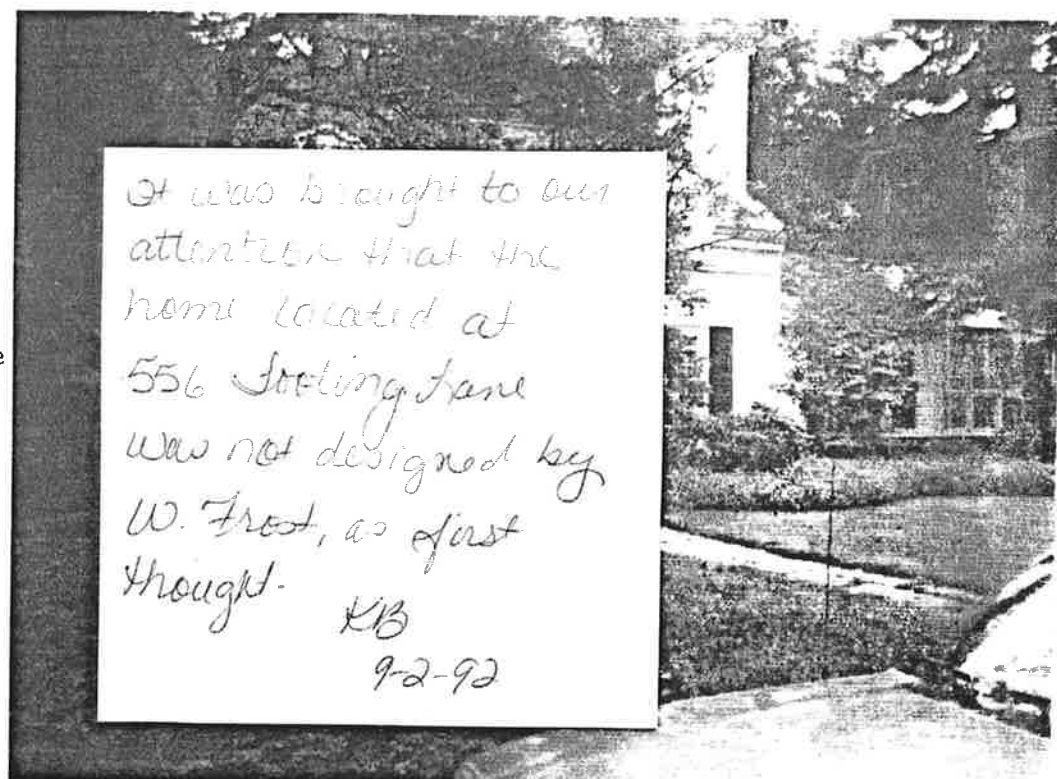 It was brought to our
attention that the
home located at
556 Tooting Lane
was not designed by
W. Frost, as first
thought.
KB
9-2-92